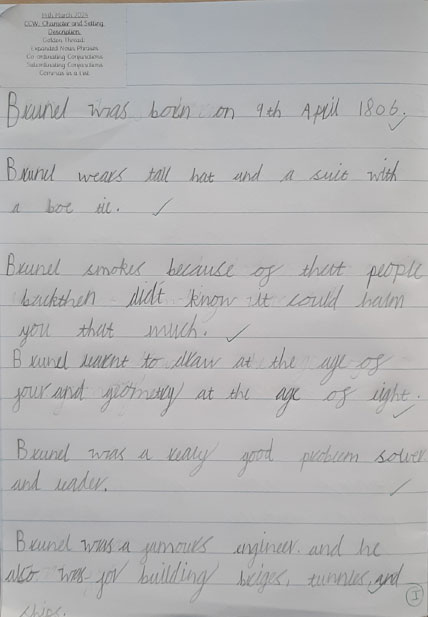 14th March 2024
CCW: Character and Setting
Description.
Golden Thread:
Expanded Noun Phrases
Co-ordinating Conjunctions
Subordinating Conjunctions
Commas in a List
Brunel was born on 9th April 1806.
Brunel wears tall hat and a suit with
a boe tie.
Brunel smokes because of that people
backthen didt know it could harm
you that much.
Brunel learnt to draw at the age of
four and geomotry at the age of eight.
Brunel was a realy good problem solver
and leader.
Brunel was a famours engineer. and he
also was for building briges, tunnles, and
ships.
I